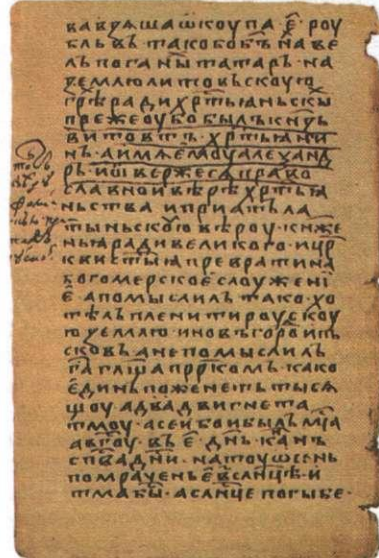 вавдѧшаѡкоупа·є҃·роу
бльвъ·такобобг҃ънаве
лъпоганы татаръ·на
землюлитовъскоую
грѣ҃радихр҃тьꙗньскы
прежеоубобылъкнѧзь
витовтъ·хр҃тьꙗни
нъ·аимѧемоуалеѯанд
ръ·иѿвержесѧправо
славнойвѣрѣхр҃тьꙗ
ньства иприатъла
тыньскоую вѣроу·книже
ньꙗ ради великого·ицр҃
квистыꙗпревратина
богомерскоеслоужені
є апомыслилътако·хо
тѣлъпленитироускоу
юземлю·иновъгорѡ҃ипъ
сковъ·анепомыслилъ
га҃глщ҃апррк҃омъ·како
єдинъпоженетътысѧ
щоу·адвадвигнета
тмоу·асеибоибылъмц҃а
авгоу҃·въ·є҃·дн҃ь·канъ
сп҃вадн҃и·натоуѡсень
помраченьєвслн҃цѣ·и
тмабы҃·аслн҃цепогыбе·